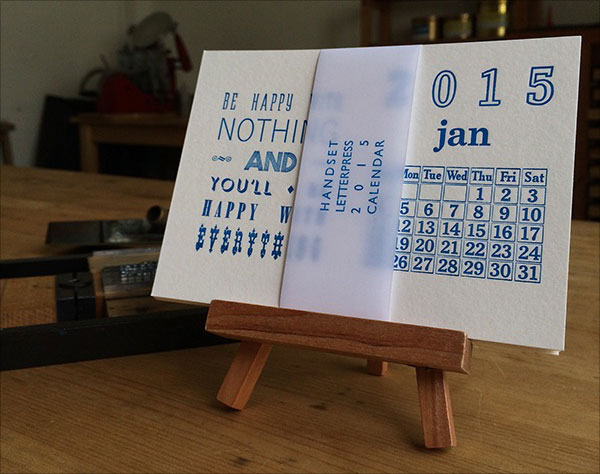 BE HAPPY
NOTHING
AND
YOU'LL
HAPPY
EVERYTHING
HANDSET
LETTERPRESS
2015
CALENDAR
2015
jan
Mon Tue Wed Thu Fri Sat
1 2 3
5 6 7 8 9 10
12 13 14 15 16 17
19 20 21 22 23 24
26 27 28 29 30 31